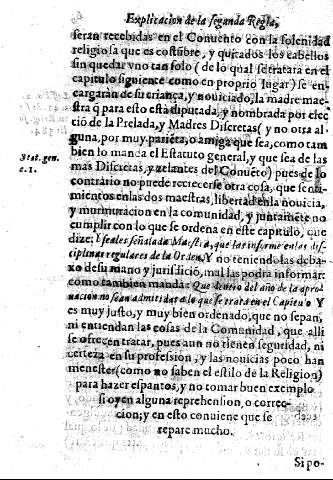 Explicacion de la segunda Regla,
seran recebidas en el Conuento con la solenidad
religiosa que es costũbre, y quitados los cabellos
sin quedar vno tan solo (de lo qual se tratara en el
capitulo siguiente como en proprio lugar) se en-
cargarán de su criança, y nouiciado, la madre mae-
stra q̃ para esto está diputada, y nombrada por elec
ció de la Prelada, y Madres Discretas (y no otra al-
guna, por muy pariẽta, o amiga que sea, como tam
Stat. gen.
c. 1.
bien lo manda el Estatuto general, y que sea de las
mas Discretas, y zelantes del Conuẽto) pues de lo
contrario no puede recrecerse otra cosa, que senti-
mientos en las dos maestras, libertad en la nouicia,
y murmuracion en la comunidad, y juntamẽte no
cumplir con lo que se ordena en este capitulo, que
dize: Y seales señalada Maestra, que las informe en las dis-
ciplinas regulares de la Orden. Y no teniendolas deba-
xo de su mano y jurisdició, mal las podrá informar:
como tambien manda: Que dentro del año de la apro-
uacion no sean admitidas a lo que se tratará en el Capitulo Y
es muy justo, y muy bien ordenado, que no sepan,
ni entiendan las cosas de la Comunidad, que alli
se ofrecen tratar, pues aun no tienen seguridad, ni
certeza en su profession, y las nouicias poco han
menester (como no saben el estilo de la Religion)
para hazer espantos, y no tomar buen exemplo
si oyen alguna reprehension, o correc-
cion; y en esto conuiene que se
repare mucho.
Si po-